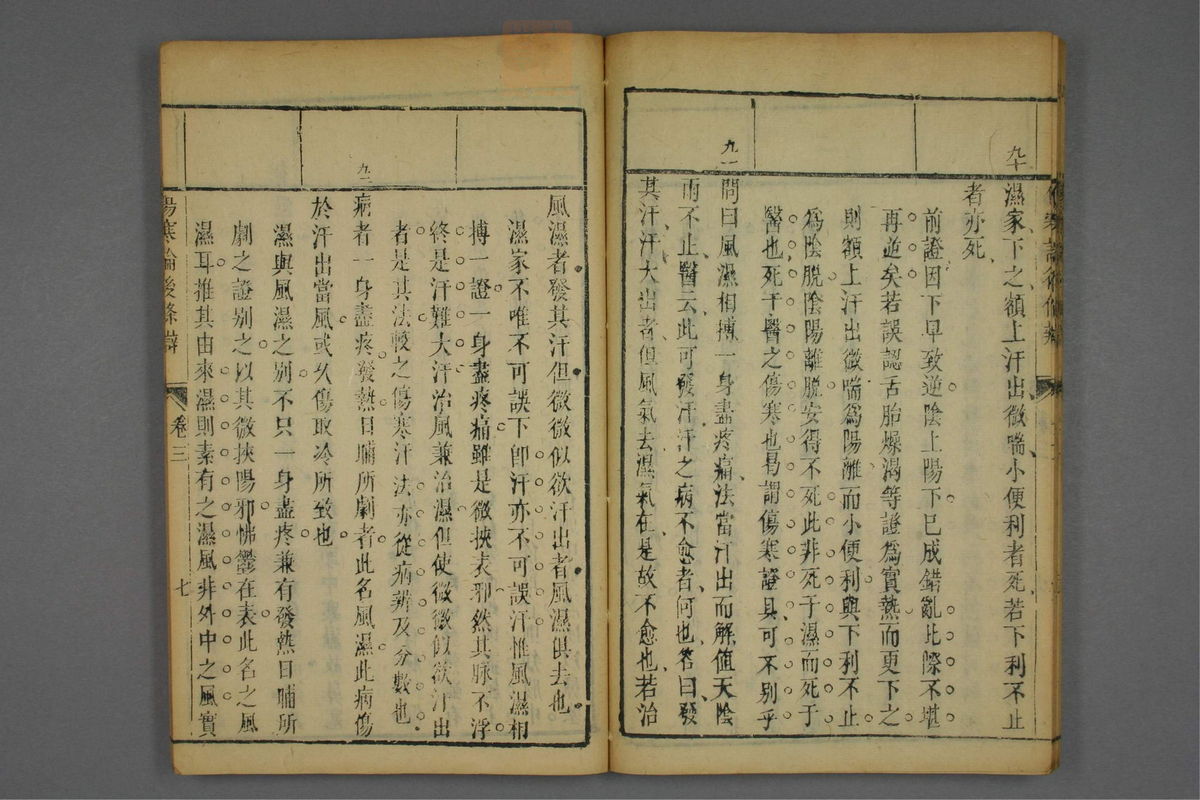 九十
濕家下之額上汗出微喘小便利者死若下利不止
者亦死
前證因下早致逆陰上陽下已成錯亂此際不堪
再逆矣若誤認舌胎燥渴等證為實熱而更下之
則額上汗出微喘為陽離而小便利與下利不止
為陰脫陰陽離脫安得不死此非死于濕而死于
醫也死于醫之傷寒也曷謂傷寒證具可不別乎
九一
問曰風濕相搏一身盡疼痛法當汗出而解值天陰
雨不止醫云此可發汗汗之病不愈者何也答曰發
其汗汗大出者但風氣去濕氣在是故不愈也若治
風濕者發其汗但微微似欲汗出者風濕俱去也
濕家不唯不可誤下卽汗亦不可誤汗惟風濕相
搏一證一身盡疼痛雖是微挾表邪然其脉不浮
終是汗難大汗治風兼治濕但使微微似欲汗出
者是其法較之傷寒汗法亦從病辨及分數也
九二
病者一身盡疼發熱日晡所劇者此名風濕此病傷
於汗出當風或久傷取冷所致也
濕與風濕之別不只一身盡疼兼有發熱日晡所
劇之證別之以其微挾陽邪怫鬱在表此名之風
濕耳推其由來濕則素有之濕風非外中之風實
傷寒論後條辯
卷三
七